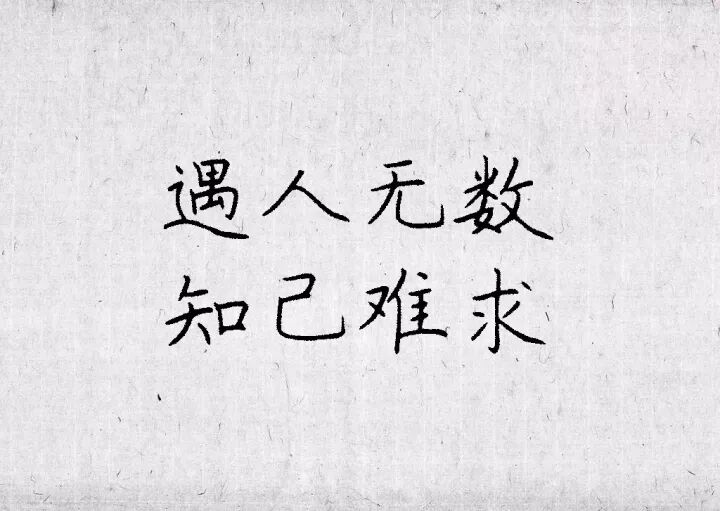 遇人无数
知己难求